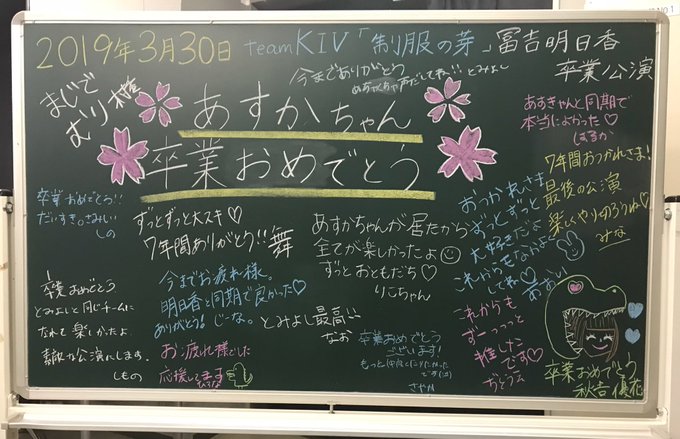 2019年3月30日 teamKIV「制服の芽」冨吉明日香
卒業公演
今までありがとう
めちゃくちゃ声だしてね!! とみよし
まじで
むり
あすかちゃん
卒業おめでとう
あすきゃんと同期で
本当によかった♡
はるか
7年間おつかれさま!
最後の公演
楽しくやりのろうね♡
みな
卒業おめでとう!!
だいすき。さみしい
しの
ずっとずっと大スキ♡
7年間ありがとう!! 舞
あすかちゃんが居たから
全てが楽しかったよ
ずっとおともだち♡
りこちゃん
おつかれさま
ずっとずっと
大好きだよ
これからもなかよく
してね♡
あおい
卒業おめでとう
とみよしと同じチームに
なれて楽しかったよ
素敵な公演にします。
しもの
今までお疲れ様。
明日香と同期で良かった♡
ありがとう! じーな。
とみよし最高!!
なお
お疲れ様でした
応援してます
卒業おめでとう
ございます!
もっと仲良くなりたかった
です
さやか
これからも
ずーっっっと
推したい
です♡
卒業おめでとう
秋吉優花